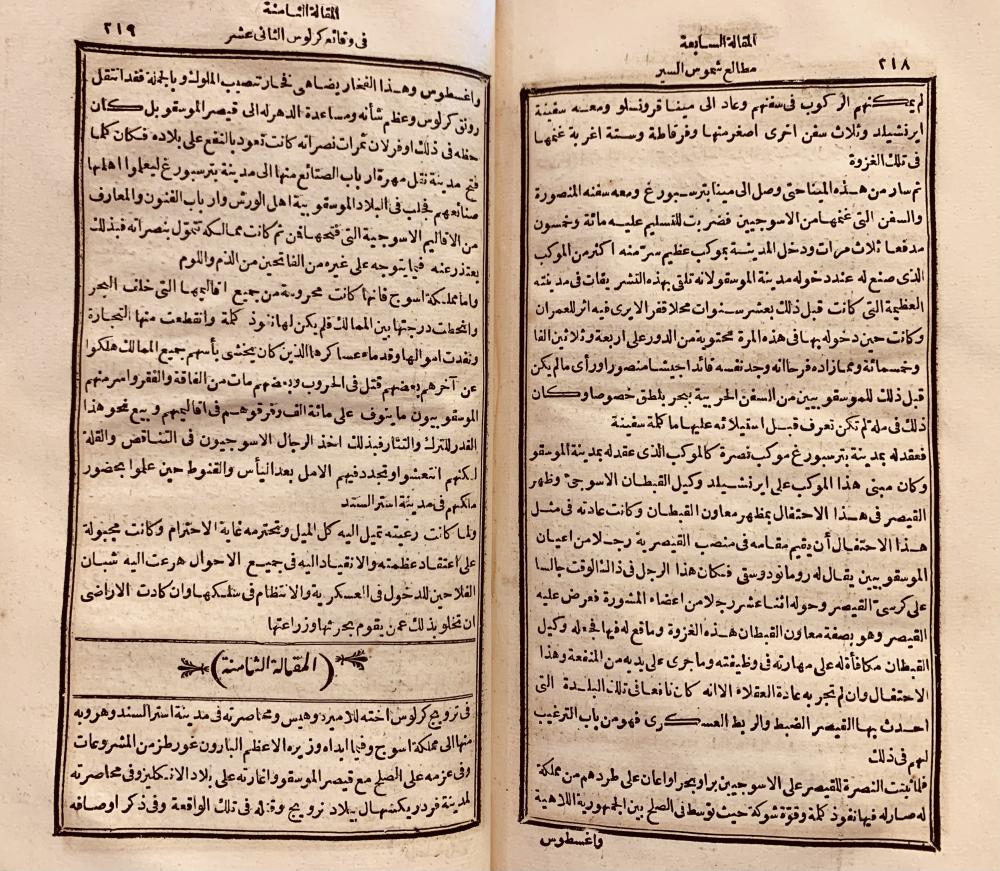 المقالة السابعة
٢١٨ مطالع شموس السير
لم يمكنهم الركوب في سفنهم وعاد الى مينا قرونسلو ومعه سفينة
ايرنشيلد وثلاث سفن اخرى اصغر منها وفرقاطة وستة اغربة غنمها
في تلك الغزوة
ثم سار من هذه المينا حتى وصل الى مينا بترسبورغ ومعه سفنه المنصورة
والسفن التي غنمها من الاسوجيين فضربت للتسليم عليه مائة وخمسون
مدفعا ثلاث مرات ودخل المدينة بموكب عظيم سر منه اكثر من الموكب
الذى صنع له عند دخوله مدينة الموسقو لانه تلقى بهذه التشريفات في مدينته
العظيمة التي كانت قبل ذلك بعشر سنوات محلا قفرا لا يرى فيه اثر للعمران
وكانت حين دخوله بها في هذه المرة محتوية من الدور على اربعة وثلاثين الفا
وخمسمائة ومما زاده فرحا انه وجد نفسه قائدا جيشا منصورا ورأى ما لم يكن
قبل ذلك للموسقوبيين من السفن الحربية ببحر بلطق خصوصا وكان
ذلك في مله لم تكن تعرف قبل استيلائه عليها ما كلمة سفينة
فعقد له بمدينة بترسبورغ موكب نصرة كالموكب الذى عقد له بمدينة الموسقو
وكان مبنى هذا الموكب على ايرنشيلد وكيل القبطان الاسوجىّ وظهر
القيصر في هذا الاحتفال بمظهر معاون القبطان وكانت عادته في مثل
هذا الاحتفال أن يقيم مقامه في منصب القيصرية رجلا من اعيان
الموسقوبيين يقال له رومانودوستى فكان هذا الرجل في ذلك الوقت جالسا
على كرسىّ القيصر وحوله اثنا عشر رجلا من اعضاء المشورة فعرض عليه
القيصر وهو بصفة معاون القبطان هذه الغزوة وما وقع له فيها فجعله وكيل
القبطان مكافأة له على مهارته في وظيفته وما جرى على يديه من المنفعة وهذا
الاحتفال وان لم تجر به عادة العقلاء الا انه كان نافعا في تلك البلدة التي
احدث بها القيصر الضبط والربط العسكرى فهو من باب الترغيب
لهم في ذلك
فلما ثبتت النصرة للقيصر على الاسوجيين برا وبحرا واعان على طردهم من مملكة
له صار له فيها نفوذ كلمة وقوة شوكة حيث توسط في الصلح بين الجمهورية اللاهية
واغسطوس
المقالة الثامنة
في وقائع كرلوس الثانى عشر ٢١٩
واغسطوس وهذا الفخار يضاهى فخار تنصيب الملوك وبالجملة فقد انتقل
رونق كرلوس وعظم شأنه ومساعدة الدهر له الى قيصر الموسقو بل كان
حظه في ذلك اوفر لان ثمرات نصراته كانت تعود بالنفع على بلاده فكان كلما
فتح مدينة نقل مهرة ارباب الصنائع منها الى مدينة بترسبورغ ليعلموا اهلها
صنائعهم فجلب في البلاد الموسقوبية اهل الورش وارباب الفنون والمعارف
من الاقاليم الاسوجية التي فتحها فمن ثم كانت ممالكه تتمول بنصراته فبذلك
يعتذر عنه فيما يتوجه على غيره من الفاتحين من الذم واللوم
واما مملكة اسوج فانها كانت محرومة من جميع اقاليمها التي خلف البحر
وانحطت درجتها بين الممالك فلم يكن لها نفوذ كلمة وانقطعت منها التجارة
ونفدت اموالها وقدماء عساكرها الذين كان يخشى بأسهم جميع الممالك هلكوا
عن آخرهم بعضهم قتل في الحروب وبعضهم مات من الفاقة والفقر واسر منهم
الموسقوبيون ما ينوف على مائة الف وفرقوهم في اقاليمهم وبيع نحو هذا
القدر للترك والتتار فبذلك اخذ الرجال الاسوجيون في التناقص والقلة
لكنهم انتعشوا وتجدد فيهم الامل بعد اليأس والقنوط حين علموا بحضور
ملكهم في مدينة استر السند
ولما كانت رعيته تميل اليه كل الميل وتحترمه غاية الاحترام وكانت مجبولة
على اعتقاد عظمته والانقياد اليه في جميع الاحوال هرعت اليه شبان
الفلاحين للدخول في العسكرية والانتظام في سلكها وان كادت الاراضى
ان تخلو بذلك عمن يقوم بحرثها وزراعتها
(المقالة الثامنة)
في ترويج كرلوس اخته للامير دوهيس ومحاصرته في مدينة استر السند وهروبه
منها الى مملكة اسوج وفيما ابداه وزيره الاعظم البارون غورطز من المشروعات
وفى عزمه على الصلح مع قيصر الموسقو واغارته على بلاد الانكليز وفى محاصرته
لمدينة فردريكسهال ببلاد نرويج وقتله في تلك الواقعة وفى ذكر اوصافه